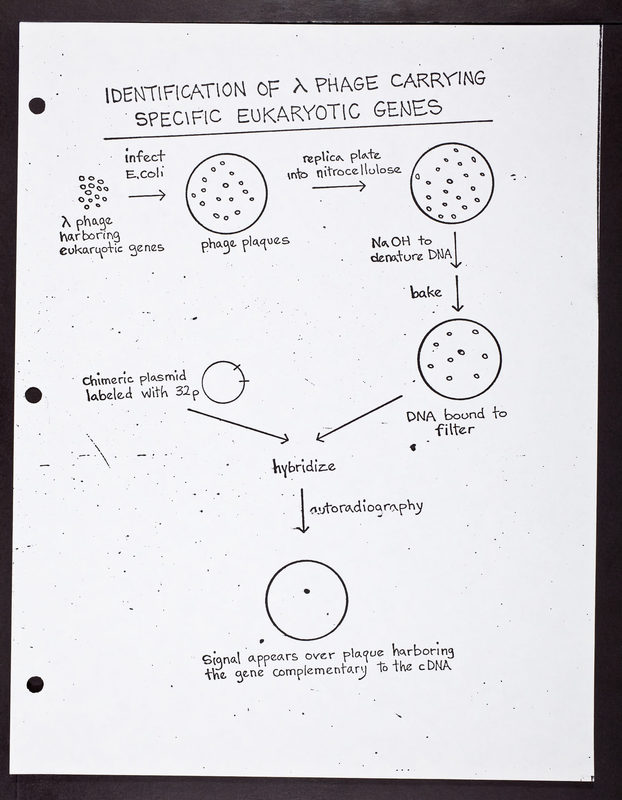 IDENTIFICATION OF λ PHAGE CARRYING
SPECIFIC EUKARYOTIC GENES
λ phage
harboring
eukaryotic genes
infect
E.coli
phage plaques
replica plate
into nitrocellulose
NaOH to
denature DNA
bake
DNA bound to
filter
Chimeric plasmid
labeled with 32p
hybridize
autoradiography
Signal appears over plaque harboring
the gene complementary to the cDNA